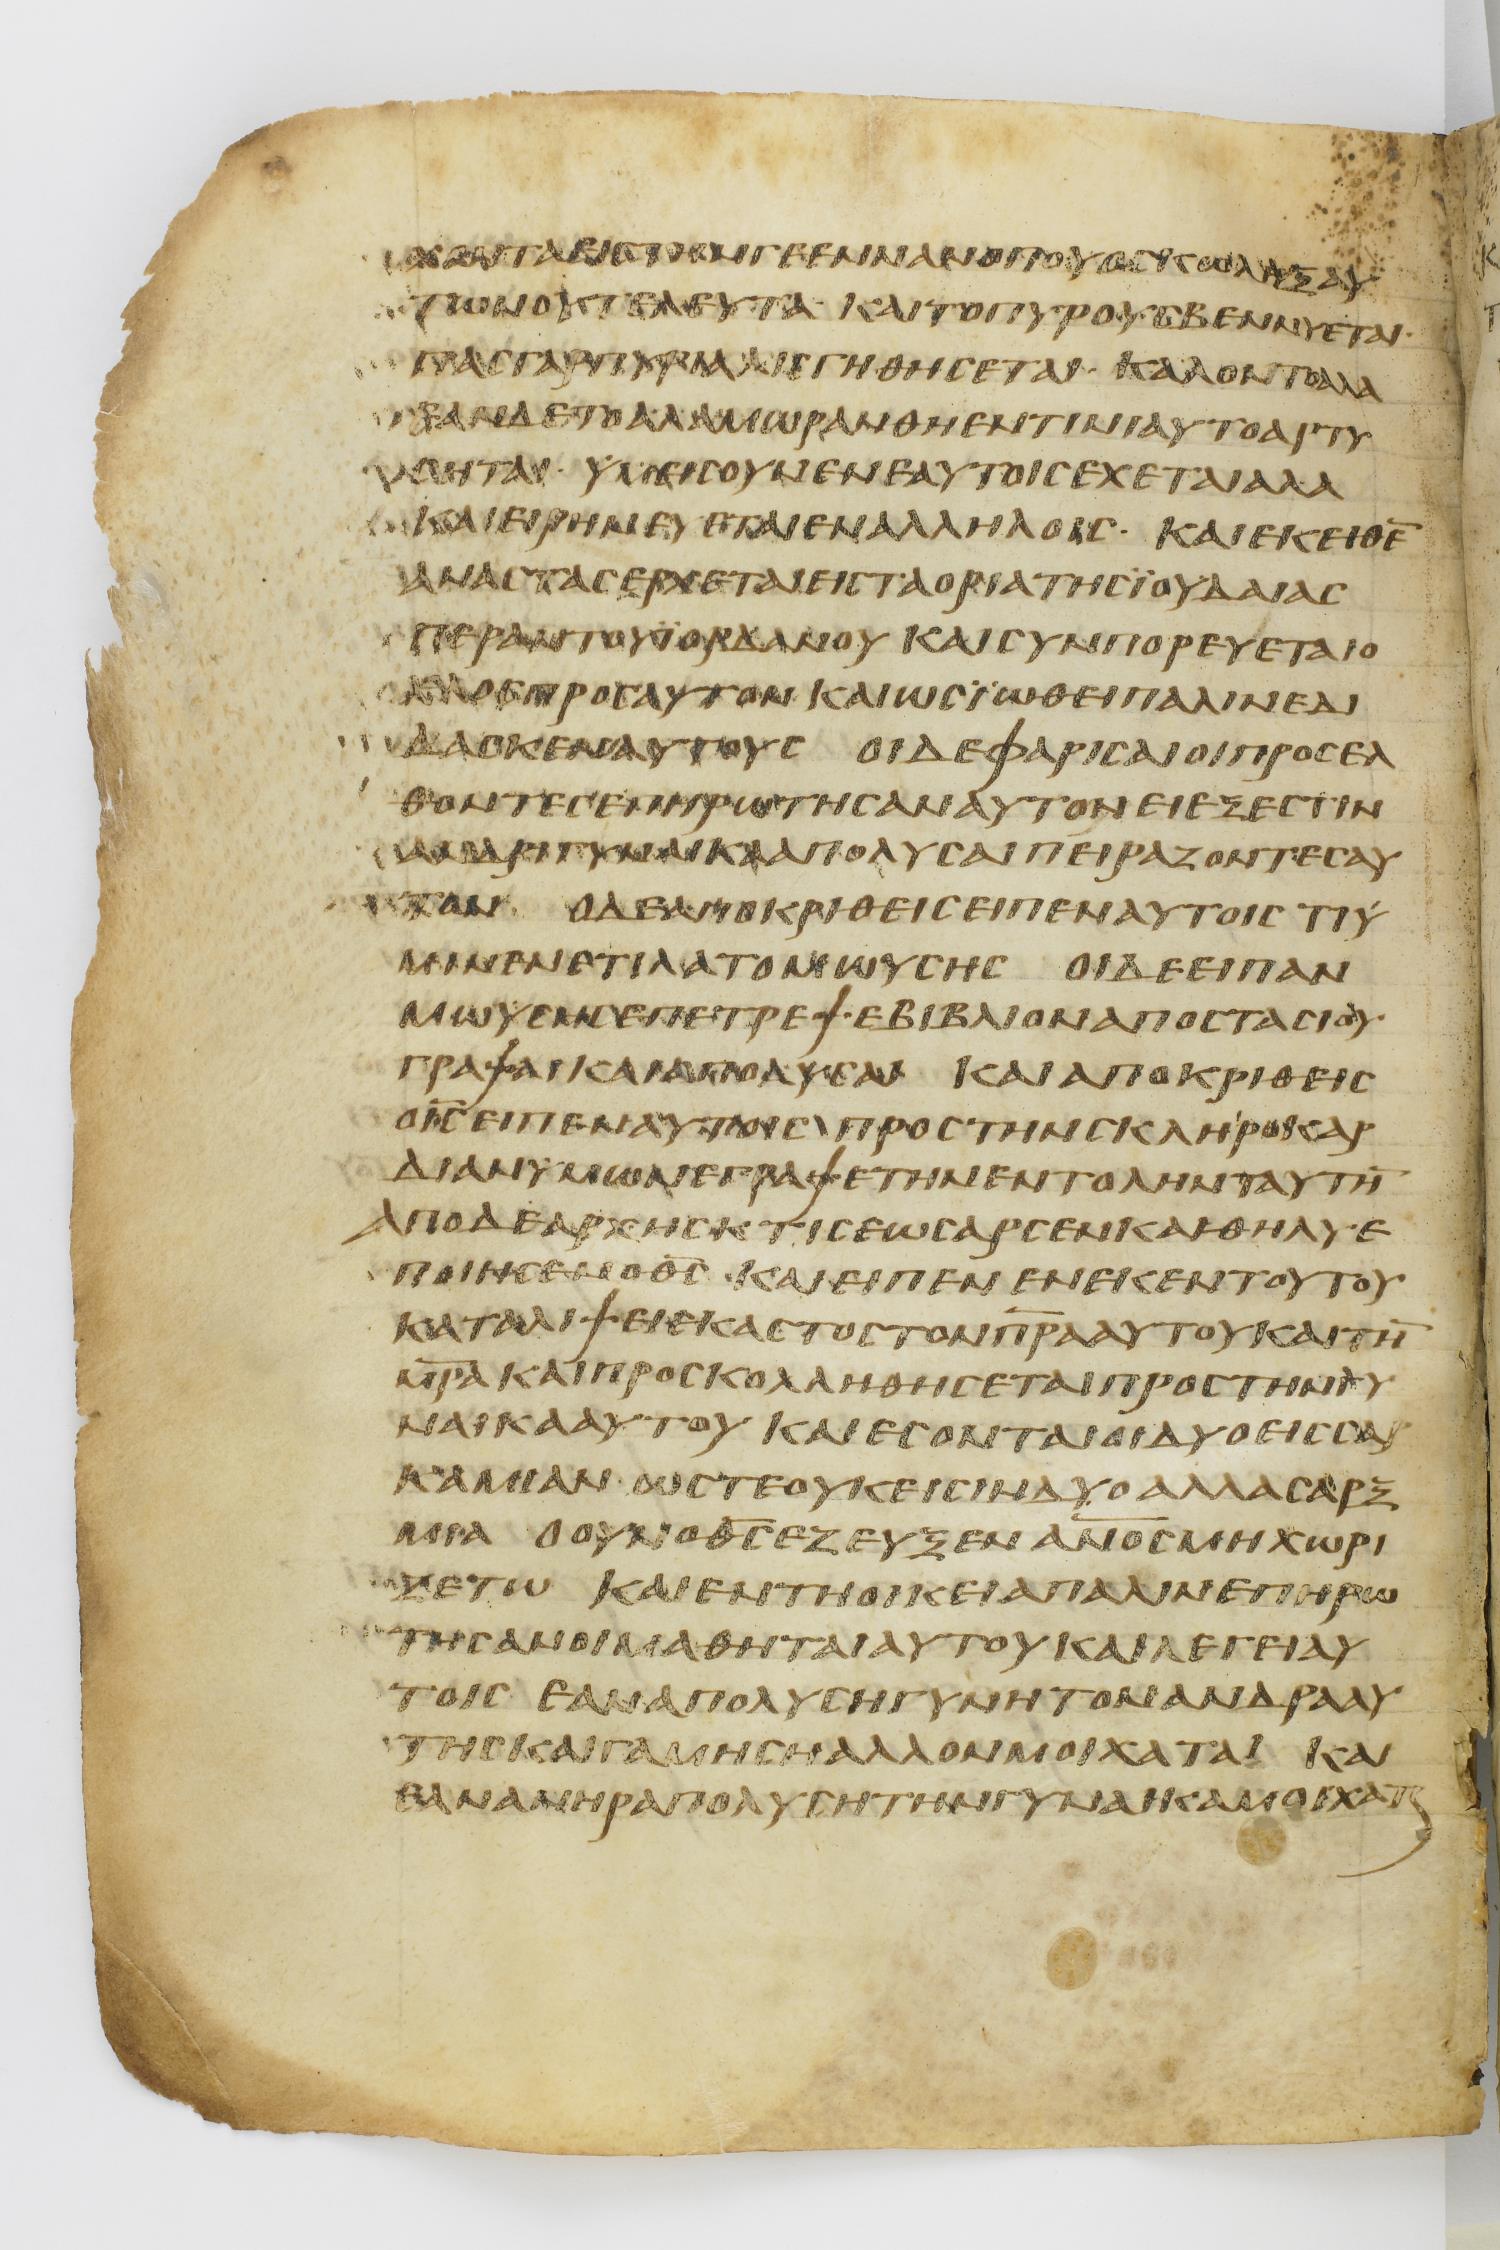 γεενναν οπου ο σκωληξ αυ
των ου τελευτα · και το πυρ ου σβεννυεται ·
πας γαρ πυρι αλισγηθησεται · καλον το αλα
εαν δε το αλα μωρανθη εν τινι αυτο αρτυ
σηται · υμεις ουν εν εαυτοις εχεται αλα
και ειρηνευεται εν αλληλοις · και εκειθε̅
αναστας ερχεται εις τα ορια της ϊουδαιας
περαν του ϊορδανου και συνπορευεται ο
οχλος προς αυτον και ως ϊωθει παλιν εδι
δασκεν αυτους οι δε φαρισαιοι προσελ
θοντες επηρωτησαν αυτον ει εξεστιν
ανδρι γυναικα απολυσαι πειραζοντες αυ
τον ο δε αποκριθεις ειπεν αυτοις τι ϋ
μιν ενετιλατο μωυσης οι δε ειπαν
μωυσης επετρεψε βιβλιον αποστασιου
γραψαι και απολυσαι και αποκριθεις
ο ι̅ς̅ ειπεν αυτοις προς την σκληροκαρ
διαν υμων εγραψε την εντολην ταυτη̅
απο δε αρχης κτισεως αρσεν και θηλυ ε
ποιησεν ο θ̅ς̅ και ειπεν ενεκεν τουτου
καταλιψει εκαστος τον π̅ρ̅α αυτου και τη̅
μ̅ρ̅α και προσκολληθησεται προς την γυ
ναικα αυτου και εσονται οι δυο εις σαρ
κα μιαν ωστε ουκ εισιν δυο αλλα σαρξ
μια ο ουν ο θ̅ς̅ εζευξεν α̅ν̅ο̅ς̅ μη χωρι
ζετω και εν τη οικεια παλιν επηρω
τησαν οι μαθηται αυτου και λεγει αυ
τοις εαν απολυση γυνη τον ανδρα αυ
της και γαμηση αλλον μοιχαται και
εαν ανηρ απολυση την γυναικα μοιχατ